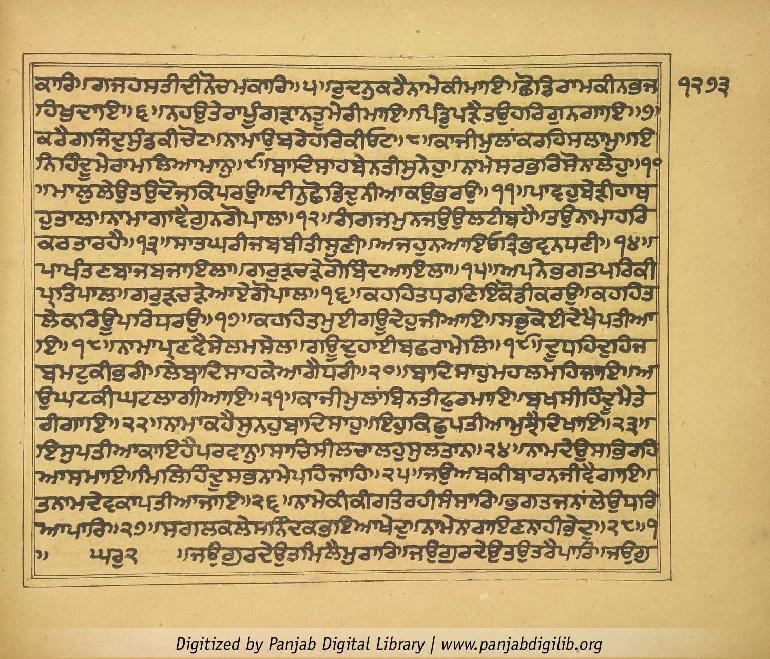 ੧੨੭੩
ਕਾਰਿ॥ਗਜਹਸਤੀਦੀਨੋਚਮਕਾਰਿ॥੫॥ਰੁਦਨੁਕਰੈਨਾਮੇਕੀਮਾਇ॥ਛੋਡਿਰਾਮਕੀਨਭਜ
ਹਿਖੁਦਾਇ॥੬॥ਨਹਉਤੇਰਾਪੂੰਗੜਾਨਤੂਮੇਰੀਮਾਇ॥ਪਿੰਡੁਪੜੈਤਉਹਰਿਗੁਨਗਾਇ॥੭
ਕਰੈਗਜਿੰਦੁਸੁੰਡਕੀਚੋਟ॥ਨਾਮਾਉਬਰੈਹਰਿਕੀਓਟ॥੮॥ਕਾਜੀਮੁਲਾਂਕਰਹਿਸਲਾਮੁ॥ਇ
ਨਿਹਿੰਦੂਮੇਰਾਮਲਿਆਮਾਨੁ॥੯॥ਬਾਦਿਸਾਹਬੇਨਤੀਸੁਨੇਹੁ॥ਨਾਮੇਸਰਭਰਿਸੋਨਾਲੇਹੁ॥੧੦
॥ਮਾਲੁਲੇਉਤਉਦੋਜਕਿਪਰਉ॥ਦੀਨੁਛੋਡਿਦੁਨੀਆਕਉਭਰਉ॥੧੧॥ਪਾਵਹੁਬੇੜੀਹਾਥ
ਹੁਤਾਲ॥ਨਾਮਾਗਾਵੈਗੁਨਗੋਪਾਲ॥੧੨॥ਗੰਗਜਮੁਨਜਉਉਲਟੀਬਹੈ॥ਤਉਨਾਮਾਹਰਿ
ਕਰਤਾਰਹੈ॥੧੩॥ਸਾਤਘਰੀਜਬਬੀਤੀਸੁਣੀ॥ਅਜਹੁਨਆਇਓਤ੍ਰਿਭਵਨਧਣੀ॥੧੪॥
ਪਾਖੰਤਣਬਾਜਬਜਾਇਲਾ॥ਗਰੁੜਚੜ੍ਹੇਗੋਬਿੰਦਆਇਲਾ॥੧੫॥ਅਪਨੇਭਗਤਪਰਿਕੀ
ਪ੍ਰਤਿਪਾਲ॥ਗਰੁੜਚੜ੍ਹੇਆਏਗੋਪਾਲ॥੧੬॥ਕਹਹਿਤਧਰਣਿਇਕੋਡੀਕਰਉ॥ਕਹਹਿਤ
ਲੇਕਰਿਊਪਰਿਧਰਉ॥੧੭॥ਕਹਹਿਤਮੁਈਗਊਦੇਹੁਜੀਆਇ॥ਸਭੁਕੋਈਦੇਖੈਪਤੀਆ
ਇ॥੧੮॥ਨਾਮਾਪ੍ਰਣਵੈਸੇਲਮਸੇਲ॥ਗਊਦੁਹਾਈਬਛਰਾਮੇਲਿ॥੧੯॥ਦੂਧਹਿਦੁਹਿਜ
ਬਮਟੁਕੀਭਰੀ॥ਲੇਬਾਦਿਸਾਹਕੇਆਗੈਧਰੀ॥੨੦॥ਬਾਦਿਸਾਹੁਮਹਲਮਹਿਜਾਇ॥ਅ
ਉਘਟਕੀਘਟਲਾਗੀਆਇ॥੨੧॥ਕਾਜੀਮੁਲਾਂਬਿਨਤੀਫੁਰਮਾਇ॥ਬਖਸੀਹਿੰਦੂਮੈਤੇ
ਰੀਗਾਇ॥੨੨॥ਨਾਮਾਕਹੈਸੁਨਹੁਬਾਦਿਸਾਹ॥ਇਹੁਕਿਛੁਪਤੀਆਮੁਝੈਦਿਖਾਇ॥੨੩॥
ਇਸੁਪਤੀਆਕਾਇਹੈਪਰਵਾਨੁ॥ਸਾਚਿਸੀਲਚਾਲਹੁਸੁਲਤਾਨ॥੨੪॥ਨਾਮਦੇਉਸਭਿਰਹਿ
ਆਸਮਾਇ॥ਮਿਲਿਹਿੰਦੂਸਭਨਾਮੇਪਹਿਜਾਹਿ॥੨੫॥ਜਉਅਬਕੀਬਾਰਨਜੀਵੈਗਾਇ॥
ਤਨਾਮਦੇਵਕਾਪਤੀਆਜਾਇ॥੨੬॥ਨਾਮੇਕੀਕੀਰਤਿਰਹੀਸੰਸਾਰਿ॥ਭਗਤਜਨਾਂਲੇਉਧਰਿ
ਆਪਾਰਿ॥੨੭॥ਸਗਲਕਲੇਸਨਿੰਦਕਭਇਆਖੇਦੁ॥ਨਾਮੇਨਾਰਾਇਣਨਾਹੀਭੇਦੁ॥੨੮॥੧
॥ ਘਰੁ੨ ॥ਜਉਗੁਰਦੇਉਤਮਿਲੈਮੁਰਾਰਿ॥ਜਉਗੁਰਦੇਉਤਉਤਰੈਪਾਰਿ॥ਜਉਗੁ
Digitized by Panjab Digital Library | www.panjabdigilib.org